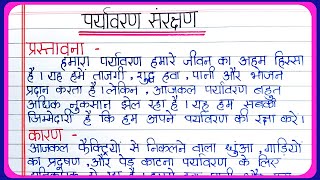 पर्यावरण संरक्षण
प्रस्तावना -
हमारा पर्यावरण हमारे जीवन का अहम हिस्सा
है। यह हमें ताजगी, शुद्ध हवा, पानी और भोजन
प्रदान करता है। लेकिन, आजकल पर्यावरण बहुत
अधिक नुकसान झेल रहा है। यह हम सबकी
जिम्मेदारी है कि हम अपने पर्यावरण की रक्षा करें।
कारण -
आजकल फैक्ट्रियों से निकलने वाला धुंआ, गाड़ियों
का प्रदूषण, और पेड़ काटना पर्यावरण के लिए